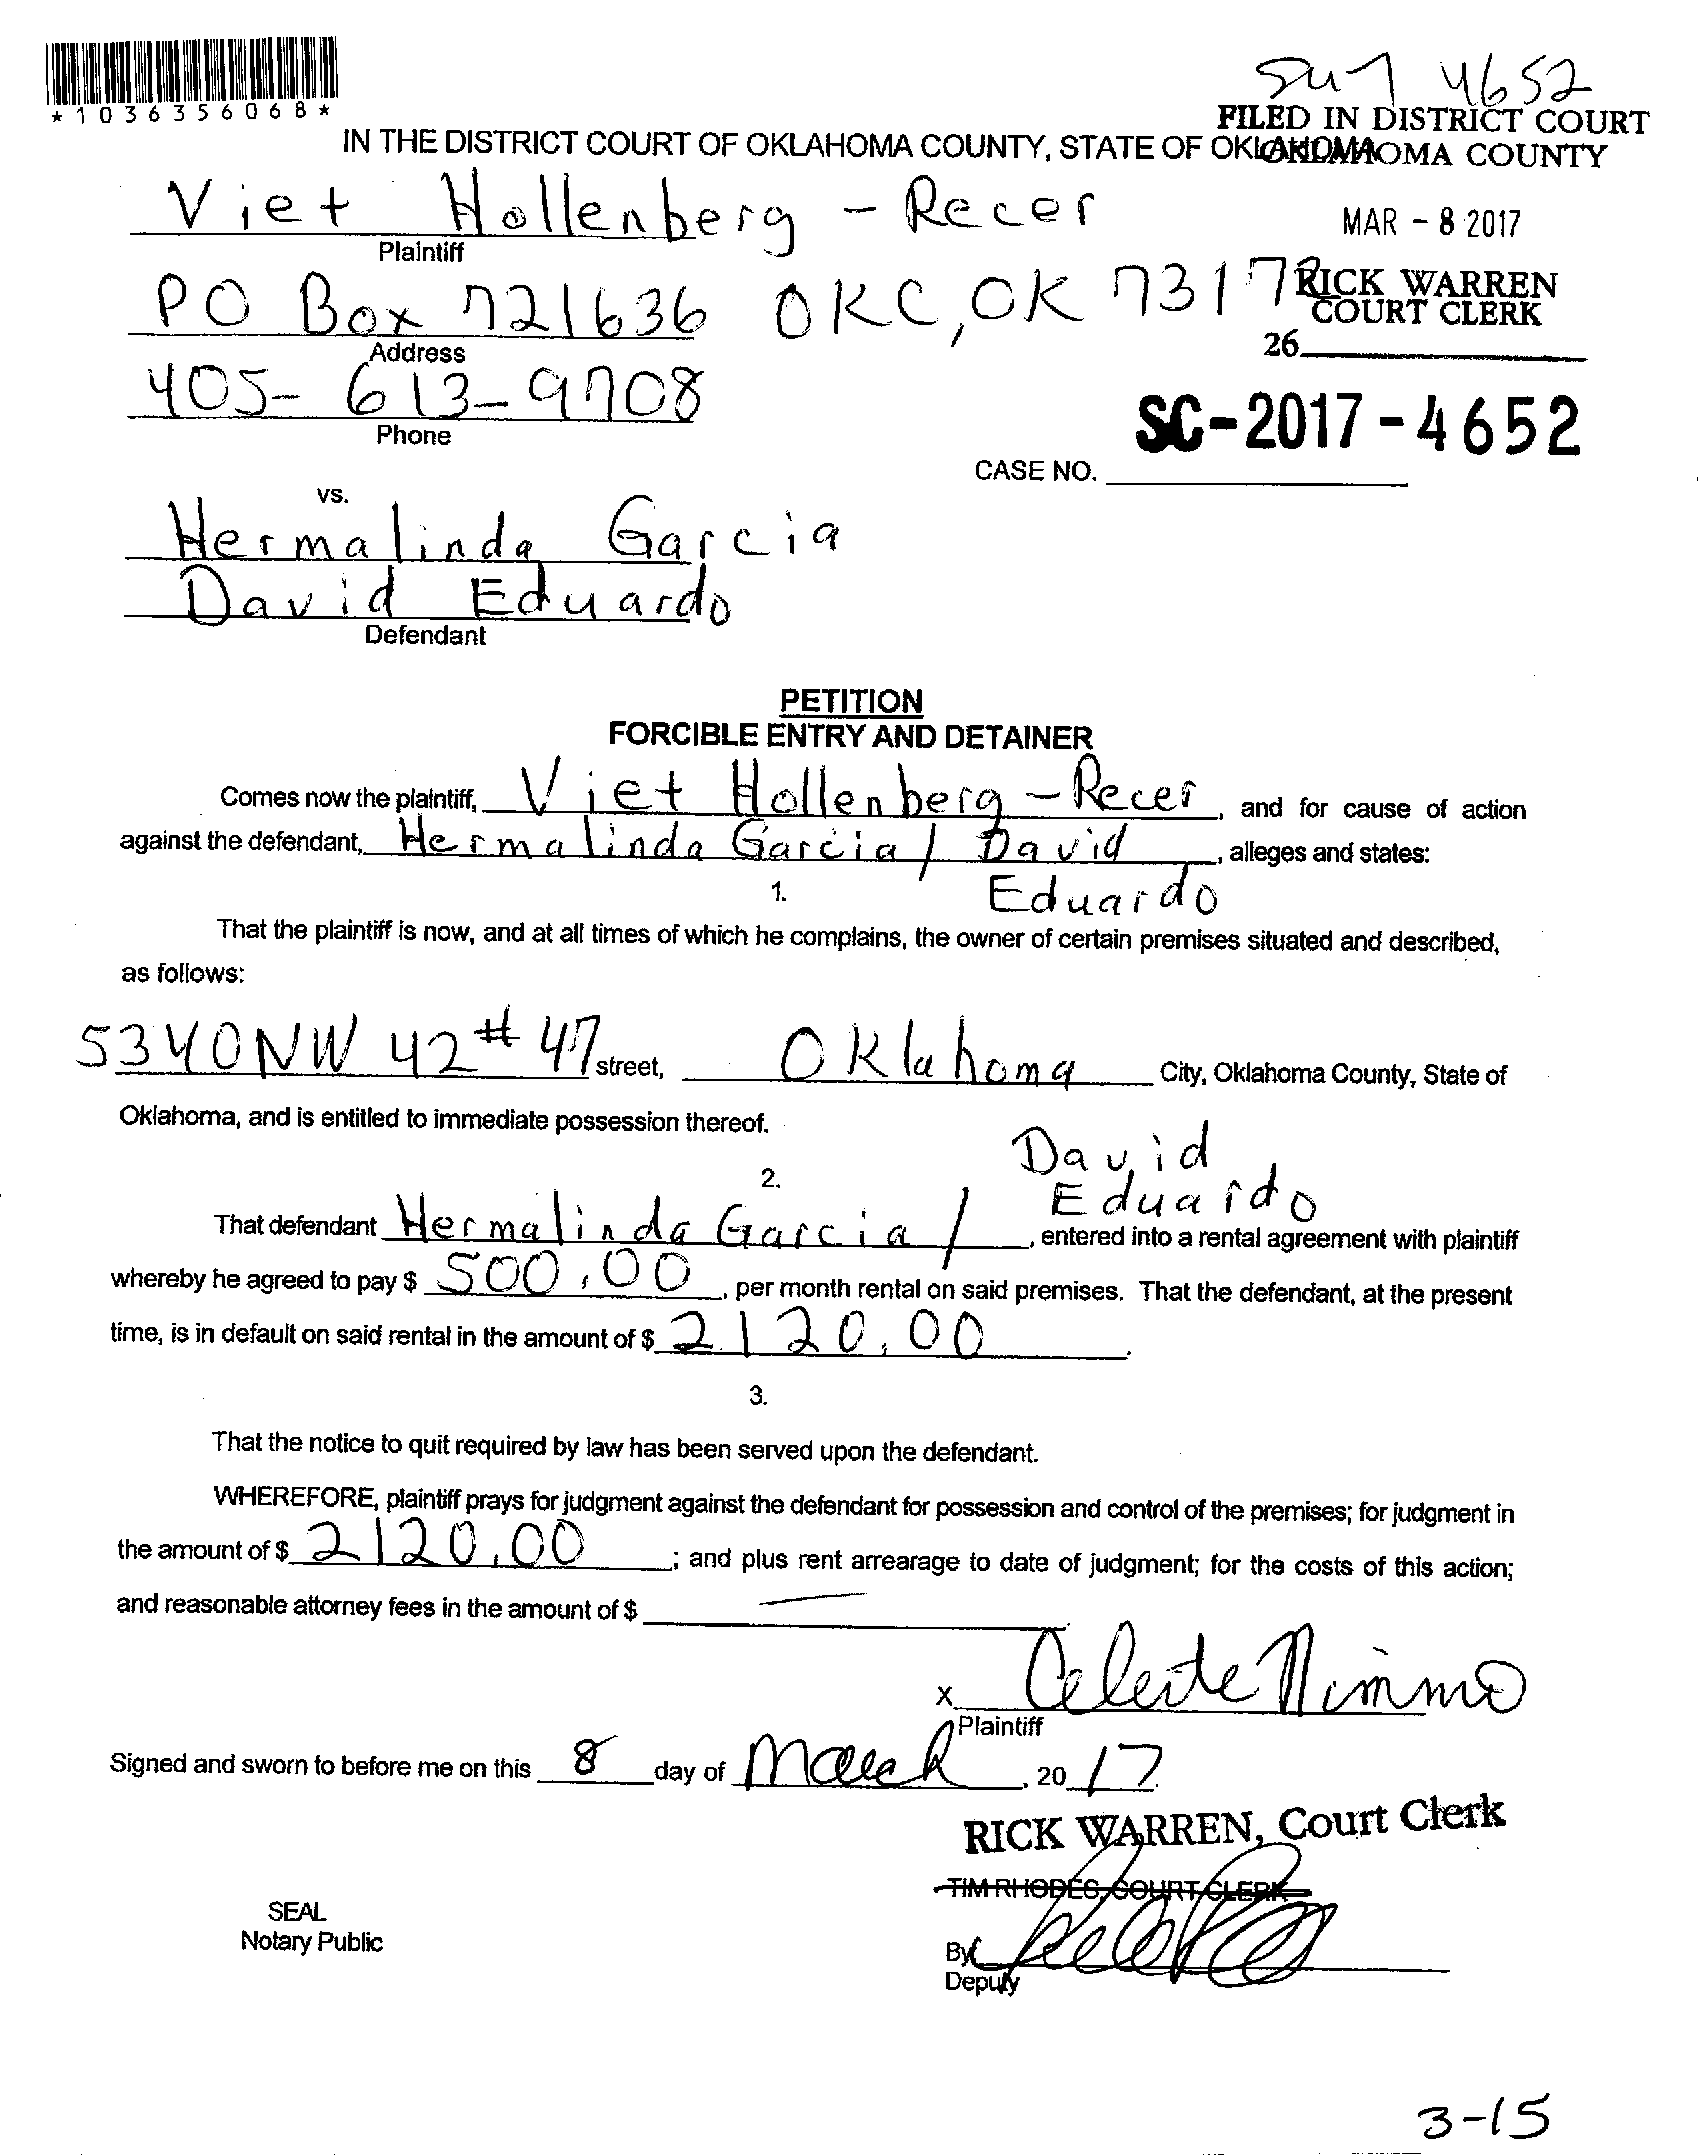 *1036356068*
4652
FILED IN DISTRICT COURT
OKLAHOMA COUNTY
IN THE DISTRICT COURT OF OKLAHOMA COUNTY, STATE OF OKLAHOMA
Viet Hollenberg-Recer
MAR - 8 2017
Plaintiff
PO Box 721636 OKC, OK 73172
RICK WARREN
COURT CLERK
26
Address
405-613-9708
Phone
SC-2017-4652
CASE NO.
vs.
Hermalinda Garcia
David Eduardo
Defendant
PETITION
FORCIBLE ENTRY AND DETAINER
Comes now the plaintiff, Viet Hollenberg-Recer, and for cause of action
against the defendant, Hermalinda Garcia / David, alleges and states:
1. Eduardo
That the plaintiff is now, and at all times of which he complains, the owner of certain premises situated and described,
as follows:
5340 NW 42 # 47 street, Oklahoma City, Oklahoma County, State of
Oklahoma, and is entitled to immediate possession thereof.
David
2. Eduardo
That defendant Hermalinda Garcia /, entered into a rental agreement with plaintiff
whereby he agreed to pay $ 500.00, per month rental on said premises. That the defendant, at the present
time, is in default on said rental in the amount of $ 2120.00.
3.
That the notice to quit required by law has been served upon the defendant.
WHEREFORE, plaintiff prays for judgment against the defendant for possession and control of the premises; for judgment in
the amount of $ 2120.00; and plus rent arrearage to date of judgment; for the costs of this action;
and reasonable attorney fees in the amount of $ —
x Celeste Nimmo
Plaintiff
Signed and sworn to before me on this 8 day of March, 2017
RICK WARREN, Court Clerk
TIM RHODES, COURT CLERK
SEAL
Notary Public
By
Deputy
3-15